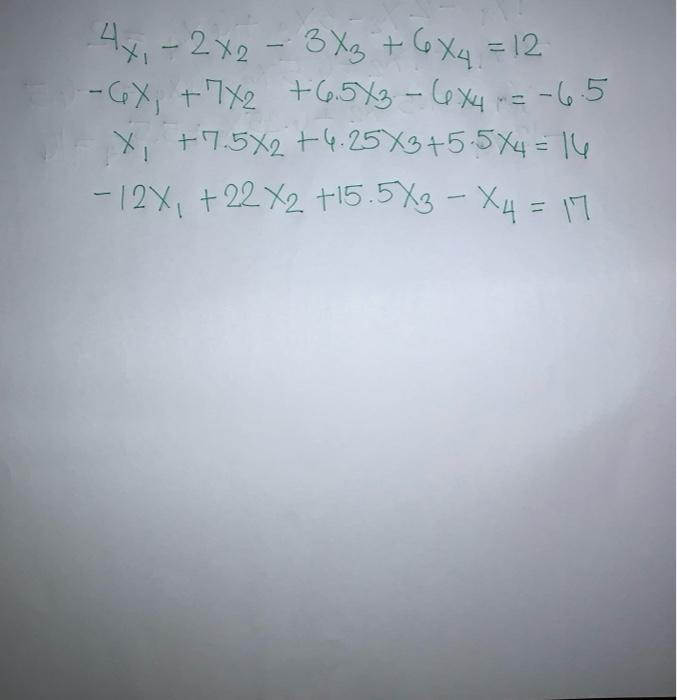 4x₁ - 2x₂ - 3x₃ + 6x₄ = 12
-6x₁ + 7x₂ + 6.5x₃ - 6x₄ = -6.5
x₁ + 7.5x₂ + 6.25x₃ + 5.5x₄ = 16
-12x₁ + 22x₂ + 15.5x₃ - x₄ = 17